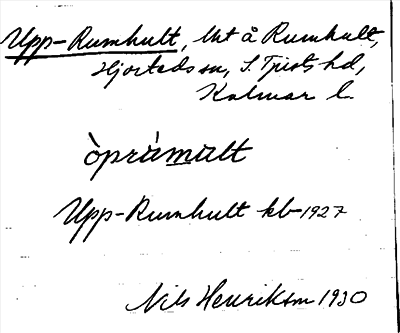 Upp-Rumhult, lht å Rumhult,
Hjorteds sn, S. Tjusts hd,
Kalmar l.
òpràmult
Upp-Rumhult kb 1927
Nils Henrikson 1930